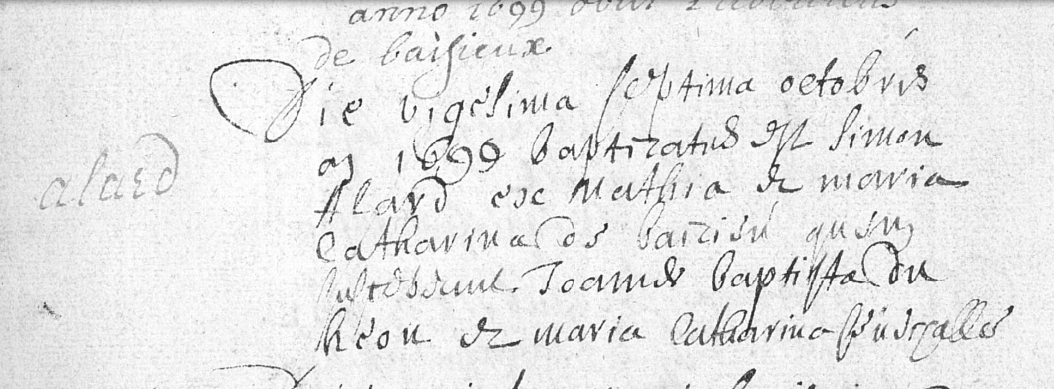 anno 1699
de baisieux
Die vigesima septima octobris
an 1699 baptizatus est Simon
alard
Alard ex Mathia et maria
Catharina de baizieu quem
susceperunt Joannes baptista du
heon et maria Catharina